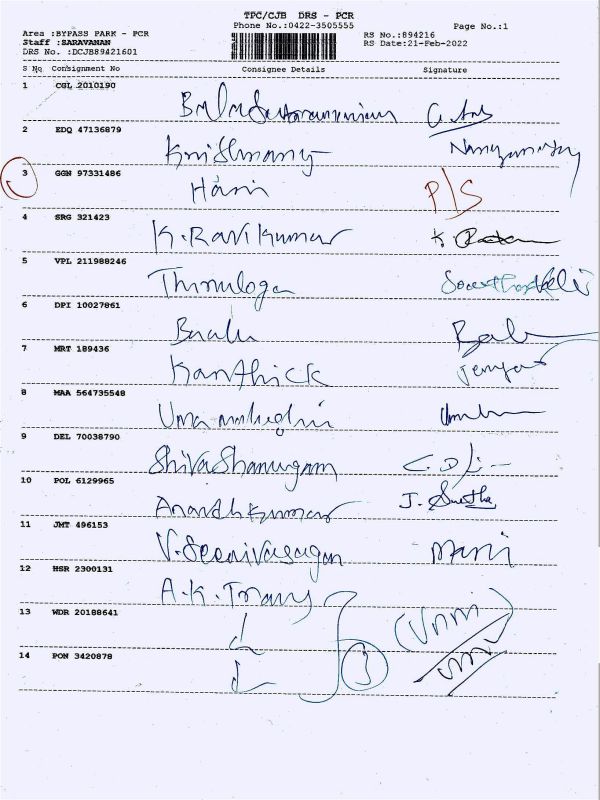 TPC/CJB DRS - PCR
Phone No.:0422-3505555 Page No.:1
Area :BYPASS PARK - PCR RS No.:894216
Staff :SARAVANAN RS Date:21-Feb-2022
DRS No. :DCJB89421601
S No Consignment No Consignee Details Signature
1 CGL 2010190
Balasubramanian
2 EDQ 47136879
Krishnamy Narayanasamy
3 GGN 97331486
Hari P/S
4 SRG 321423
K. Ravi Kumar
5 VPL 211988246
Thiruloga
6 DPI 10027861
Baalu Balu
7 MRT 189436
Karthick
8 MAA 564735548
Uma maheghri
9 DEL 70038790
ShivaShanugam
10 POL 6129965
Anandh Kumar J. Swetha
11 JMT 496153
V. Seenivasagan Mani
12 HSR 2300131
A.K. Trans
13 WDR 20188641
14 PON 3420878
3